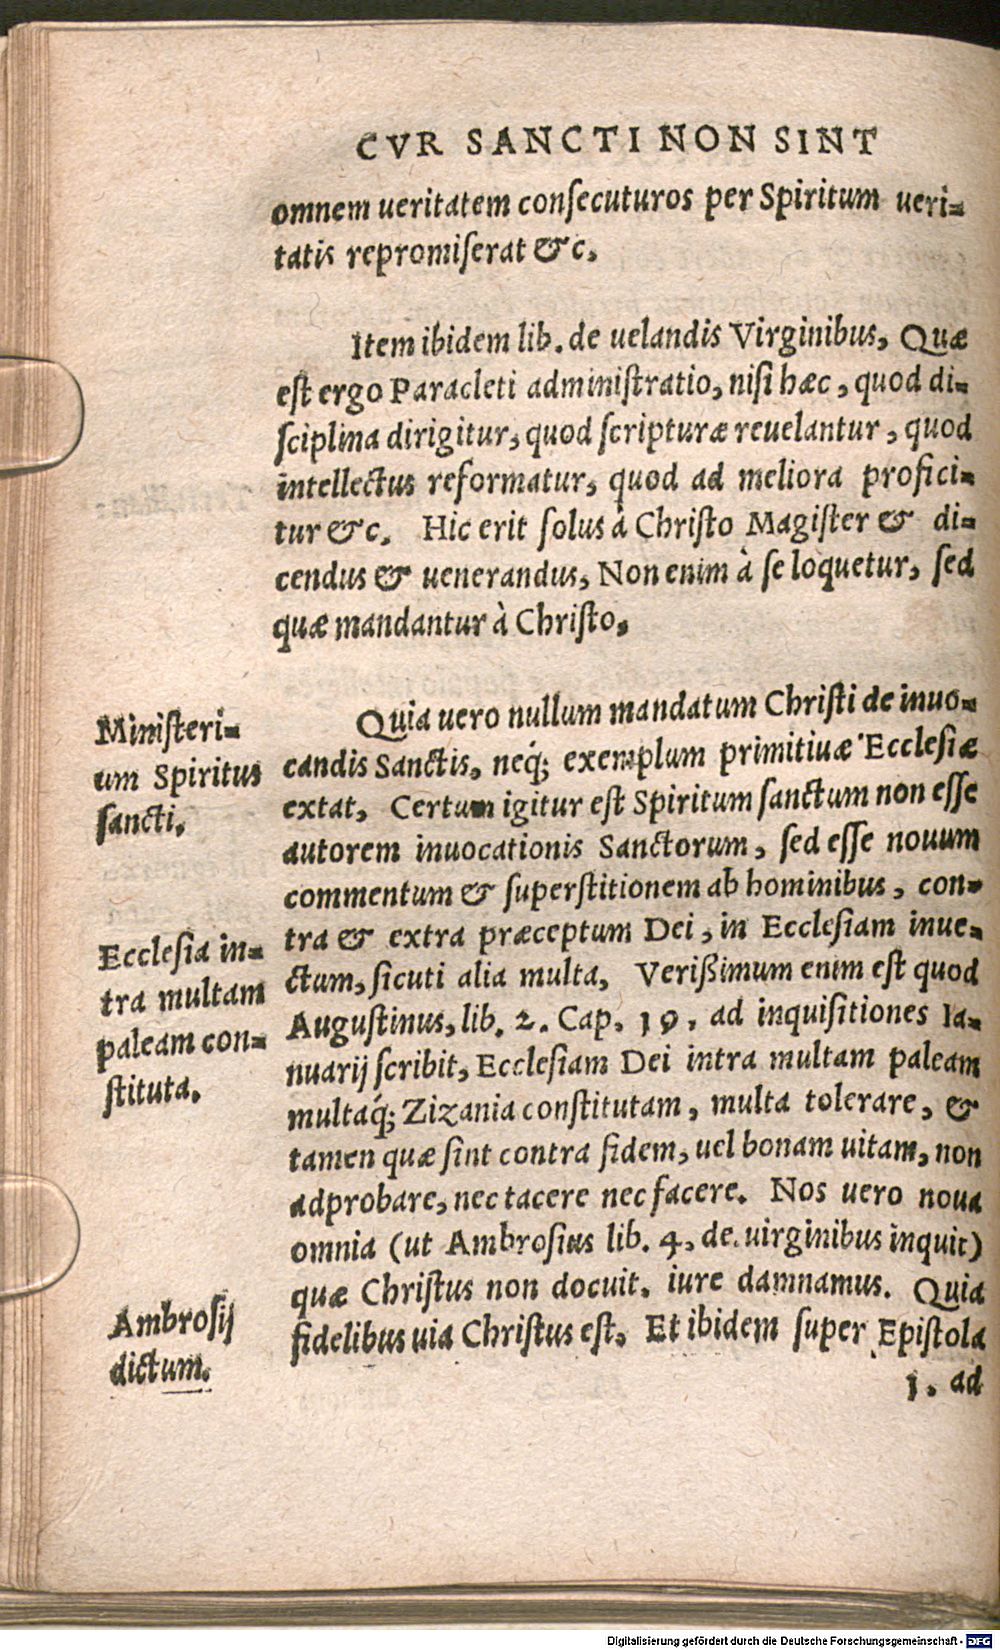 CVR SANCTI NON SINT
omnem ueritatem conſecuturos per Spiritum ueri-
tatis repromiſerat &c.
Item ibidem lib. de uelandis Virginibus, Quæ
eſt ergo Paracleti adminiſtratio, niſi hæc, quod di-
ſciplina dirigitur, quod ſcripturæ reuelantur, quod
intellectus reformatur, quod ad meliora profici-
tur &c. Hic erit ſolus à Chriſto Magiſter & di-
cendus & uenerandus, Non enim à ſe loquetur, ſed
quæ mandantur à Chriſto.
Miniſteri-
um Spiritus
ſancti.
Quia uero nullum mandatum Chriſti de inuo-
candis Sanctis, neq́; exemplum primitiuæ Eccleſiæ
extat, Certum igitur eſt Spiritum ſanctum non eſſe
autorem inuocationis Sanctorum, ſed eſſe nouum
commentum & ſuperſtitionem ab hominibus, con-
tra & extra præceptum Dei, in Eccleſiam inue-
ctum, ſicuti alia multa, Verißimum enim eſt quod
Auguſtinus, lib. 2. Cap. 19. ad inquiſitiones Ia-
nuarij ſcribit, Eccleſiam Dei intra multam paleam
multaq́; Zizania conſtitutam, multa tolerare, &
tamen quæ ſint contra fidem, uel bonam uitam, non
adprobare, nec tacere nec facere. Nos uero noua
omnia (ut Ambroſius lib. 4. de uirginibus inquit)
quæ Chriſtus non docuit. iure damnamus. Quia
fidelibus uia Chriſtus eſt. Et ibidem ſuper Epiſtola
1. ad
Eccleſia in-
tra multam
paleam con-
ſtituta.
Ambroſij
dictum.
Digitalisierung gefördert durch die Deutsche Forschungsgemeinschaft - DFG